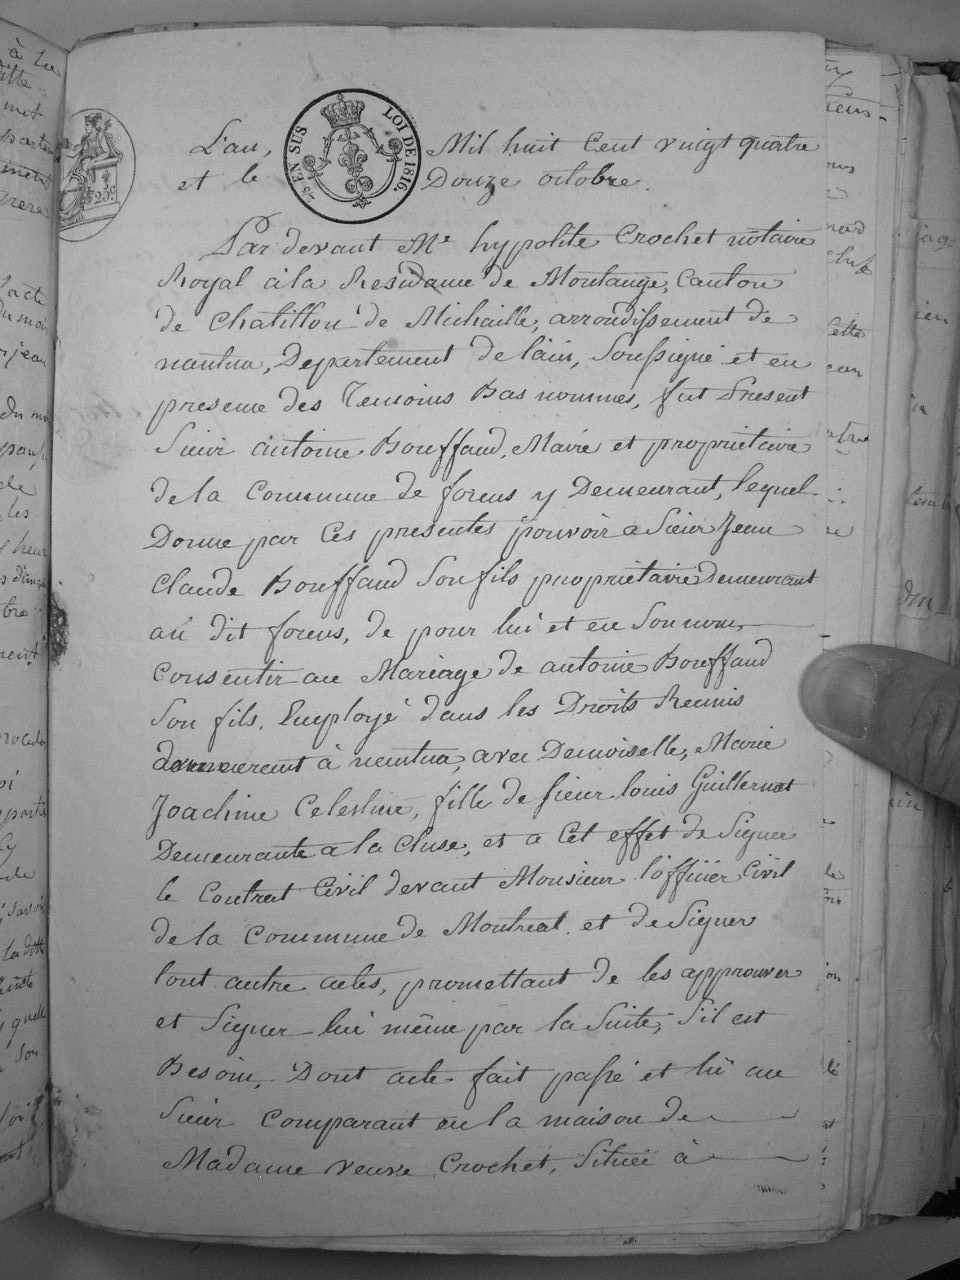 L'an, Mil huit Cent vingt quatre
et le Douze octobre.
28 EN SUS LOI DE 1816.
25c.
Par devant Me hypolite Crochet notaire
Royal à la Residance de Montange, Canton
de Chatillon de Michaille, arrondissement de
nantua, Departement de l'ain, Soussigné et en
presence des Temoins Bas nommes, fut Present
Sieur antoine Bouffaud, Maire et proprietaire
de la Commune de forens y Demeurant, lequel
Donne par Ces presentes pouvoir a Sieur Jean
Claude Bouffaud Son fils proprietaire Demeurant
au dit forens, de pour lui et en Son nom,
Consentir au Mariage de antoine Bouffaud
Son fils, Employé dans les Droits Reunis
demeurent à nantua, avec Demoiselle, Marie
Joachine Celestine, fille de sieur louis Guillermet
Demeurante a la Cluse, et a Cet effet de Signer
le Contrat Civil devant Monsieur l'officier Civil
de la Commune de Montreal. et de Signer
tout autre actes, promettant de les approuver
et Signer lui même par la Suite, S'il est
Besoin, Dont acte fait passé et lu au
Sieur Comparant en la maison de
Madame veuve Crochet, Située à